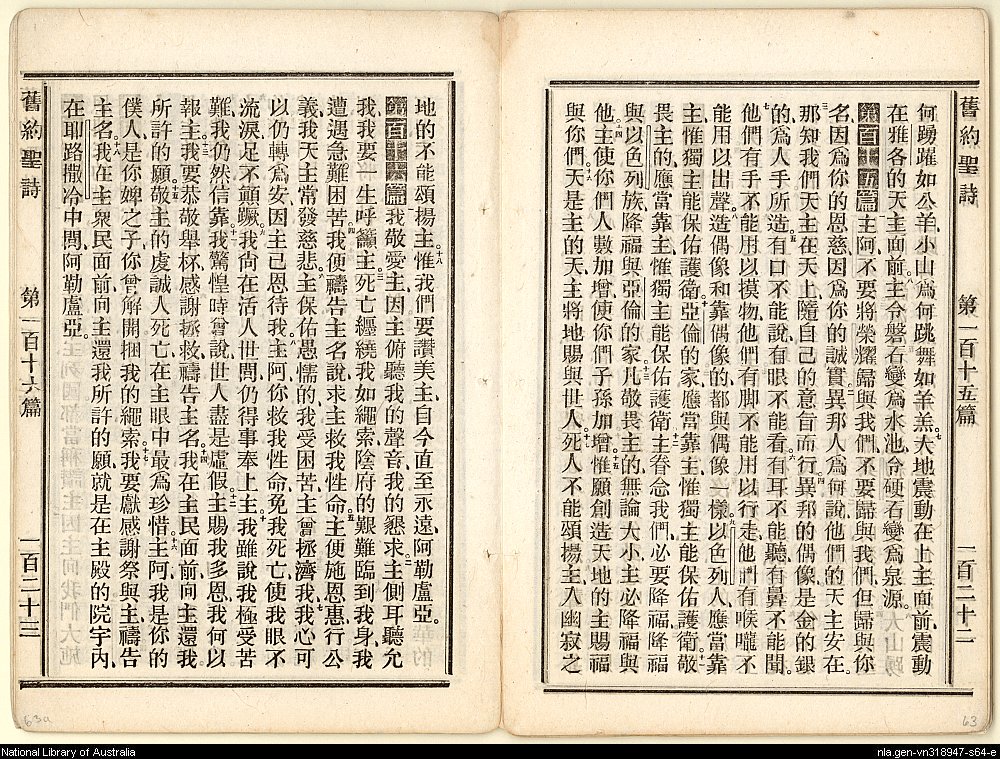 舊約聖詩 第一百十五篇 一百二十二
何踴躍如公羊、小山爲何跳舞如羊羔、七大地震動、在上主面前震動
在雅各的天主面前、八主令磐石變爲水池、令硬石變爲泉源。
第百十五篇 主阿、不要將榮耀歸與我們、不要歸與我們、但歸與你
名、因爲你的恩慈、因爲你的誠實、二異邦人爲何說他們的天主安在、
三那知我們天主在天上、隨自己的意旨而行、四異邦的偶像、是金的銀
的、爲人手所造、五有口不能說、有眼不能看、六有耳不能聽、有鼻不能聞、
七他們有手不能用以摸物、他們有脚不能用以行走、他們有喉嚨不
能用以出聲、八造偶像和靠偶像的、都與偶像一樣、九以色列人應當靠
主、惟獨主能保佑護衛、十亞倫的家應當靠主、惟獨主能保佑護衛、十一敬
畏主的應當靠主、惟獨主能保佑護衛、十二主眷念我們、必要降福、降福
與以色列族、降福與亞倫的家、十三凡敬畏主的、無論大小、主必降福與
他、十四主使你們人數加增、使你們子孫加增、十五惟願創造天地的主賜福
與你們、十六天是主的天、主將地賜與世人、十七死人不能頌揚主、入幽寂之
地的不能頌揚主、十八惟我們要讚美主、自今直至永遠、阿勒盧亞。
第百十六篇 我敬愛主、因主俯聽我的聲音、我的懇求、二主側耳聽允
我、我要一生呼籲主、三死亡纏繞我如繩索、陰府的艱難臨到我身、我
遭遇急難困苦、四我便禱告主名說、求主救我性命、五主便施恩惠、行公
義、我天主常發慈悲、六主保佑愚懦的、我受困苦、主曾拯濟我、七我心可
以仍轉爲安、因主已恩待我、八主阿、你救我性命免我死亡、使我眼不
流淚、足不顛蹶、九我尙在活人世間、仍得事奉上主、十我雖說我極受苦
難、我仍然信靠、十一我驚惶時曾說、世人盡是虛假、十二主賜我多恩、我何以
報主、十三我要恭敬舉杯感謝拯救、禱告主名、十四我在主民面前、向主還我
所許的願、十五敬主的虔誠人死亡、在主眼中最爲珍惜、十六主阿、我是你的
僕人、是你婢之子、你曾解開捆我的繩索、十七我要獻感謝祭與主、禱告
主名、十八我在主衆民面前、向主還我所許的願、十九就是在主殿的院宇內
在耶路撒冷中間、阿勒盧亞。
舊約聖詩 第一百十六篇 一百二十三
63a
63
National Library of Australia
nla.gen-vn318947-s64-e